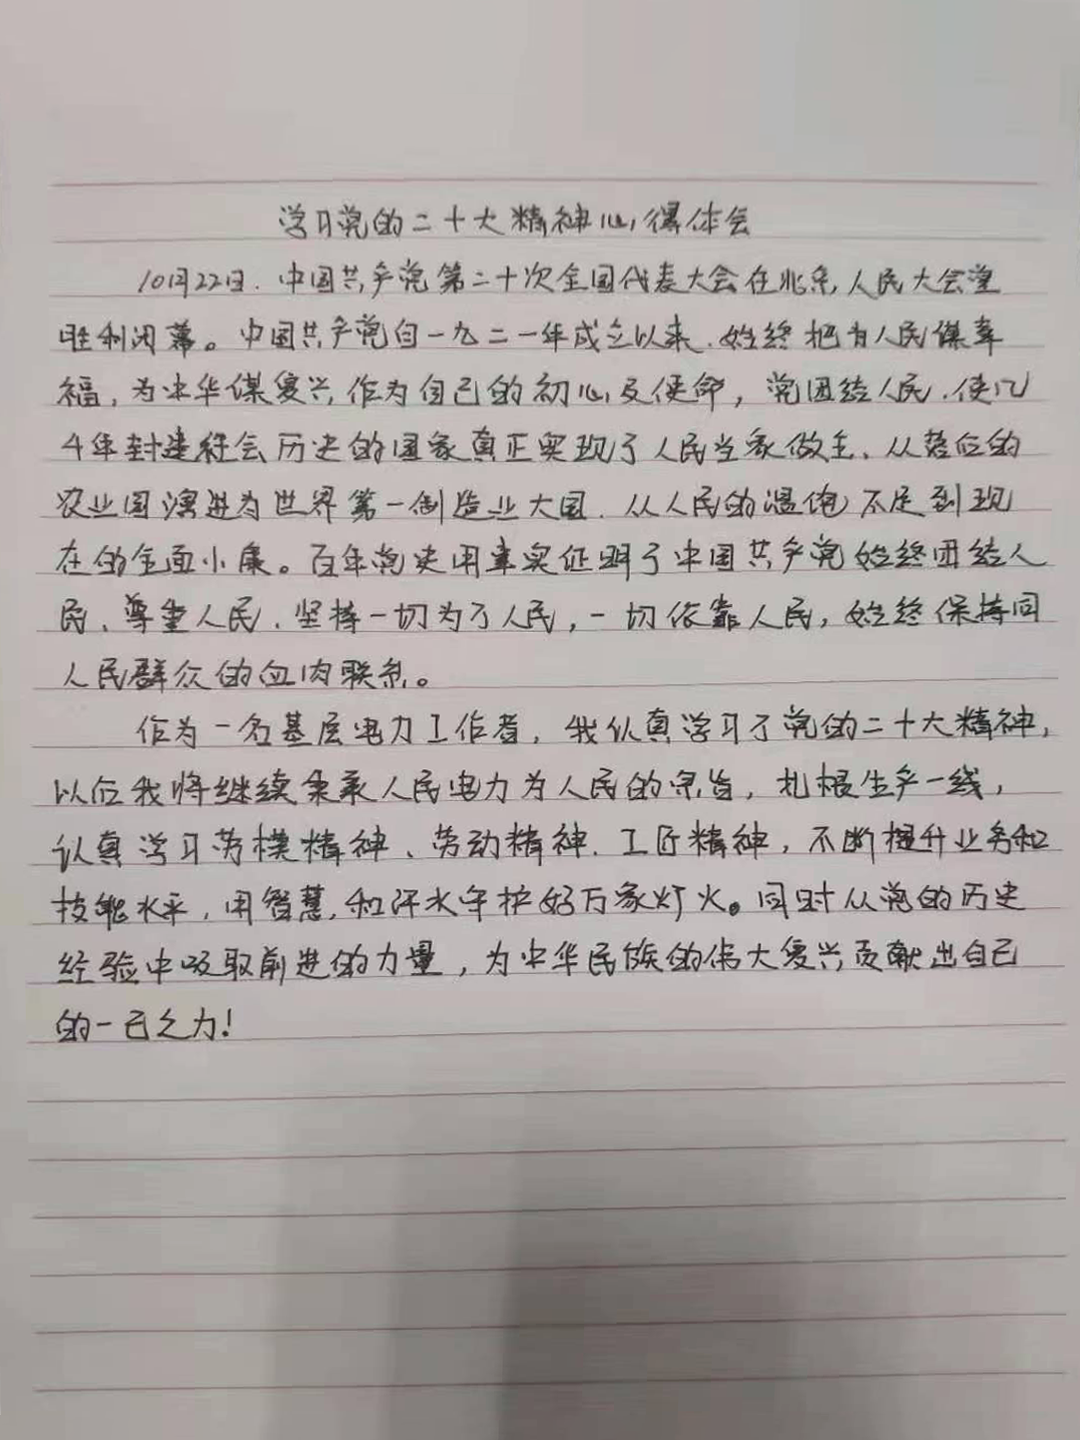 学习党的二十大精神心得体会
10月22日.中国共产党第二十次全国代表大会在北京人民大会堂
胜利闭幕。中国共产党自一九二一年成立以来.始终把为人民谋幸
福,为中华谋复兴,作为自己的初心及使命,党团结人民.使几
千年封建社会历史的国家真正实现了人民当家做主、从落后的
农业国演进为世界第一制造业大国.从人民的温饱不足到现
在的全面小康。百年党史用事实证明了中国共产党始终团结人
民、尊重人民.坚持一切为了人民,一切依靠人民,始终保持同
人民群众的血肉联系。
作为一名基层电力工作者,我认真学习了党的二十大精神,
以后我将继续秉承人民电力为人民的宗旨,扎根生产一线,
认真学习劳模精神、劳动精神.工匠精神,不断提升业务和
技能水平,用智慧,和汗水守护好万家灯火。同时从党的历史
经验中吸取前进的力量,为中华民族的伟大复兴贡献出自己
的一己之力!